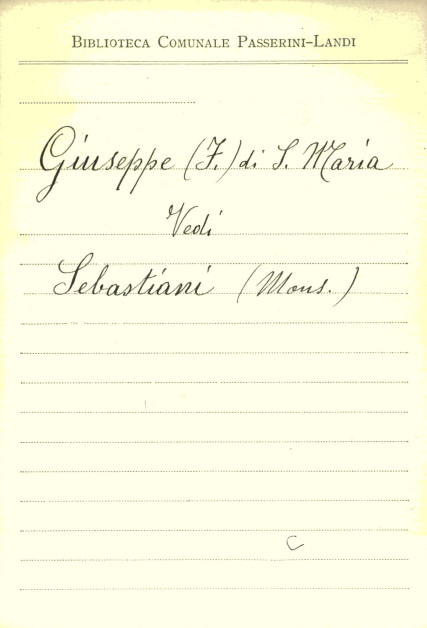 BIBLIOTECA COMUNALE PASSERINI-LANDI
Giuseppe (F.) di S. Maria
Vedi
Sebastiani (Mons.)
C